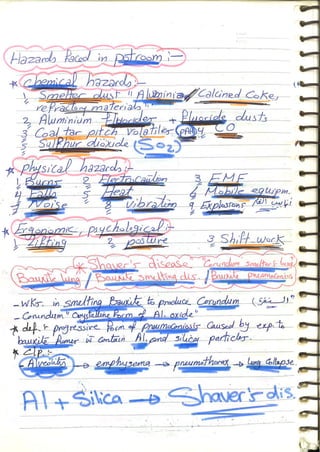 Hazards faced in potroom :-
* chemical hazards:-
1 Smelter dust " Alumina, Calcined Coke,
refractory materials"
2 Aluminium Fluorides + Fluoride dusts
3 Coal tar pitch volatiles (PAH) 4 CO
5 Sulphur dioxide (SO2)
* physical hazards:-
1 Burns 2 Electrocution 3 EMF
4 Falls 5 Heat 6 Mobile equipm.
7 Noise 8 vibration 9 Explosions
* Ergonomic, psychological:-
1 lifting 2 posture 3 Shift work
* Shaver's disease Corundum smelter's lung
Bauxite lung / Bauxite smelting dis. / Bauxite pneumoconiosis
- WKs. in smelting Bauxite to produce Corundum
- Corundum "Crystalline form of Al. oxide"
* def. : progressive form of pneumoconiosis caused by exp. to
bauxite fumes contain Al. and silica particles.
* C/P:-
- Alveolitis → emphysema → pneumothorax → lung collapse
Al + Silica → Shaver's dis.